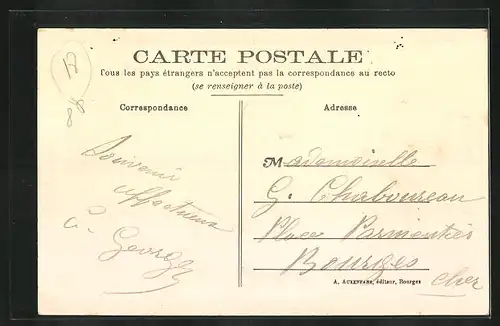 CARTE POSTALE
Tous les pays étrangers n'acceptent pas la correspondance au recto
(se renseigner à la poste)
Correspondance
Adresse
Souvenir
affectueux
C. Georges
Mademoiselle
G. Chaboureau
Place Parmentier
Bourges
Cher
A. AUXENFANS, éditeur, Bourges